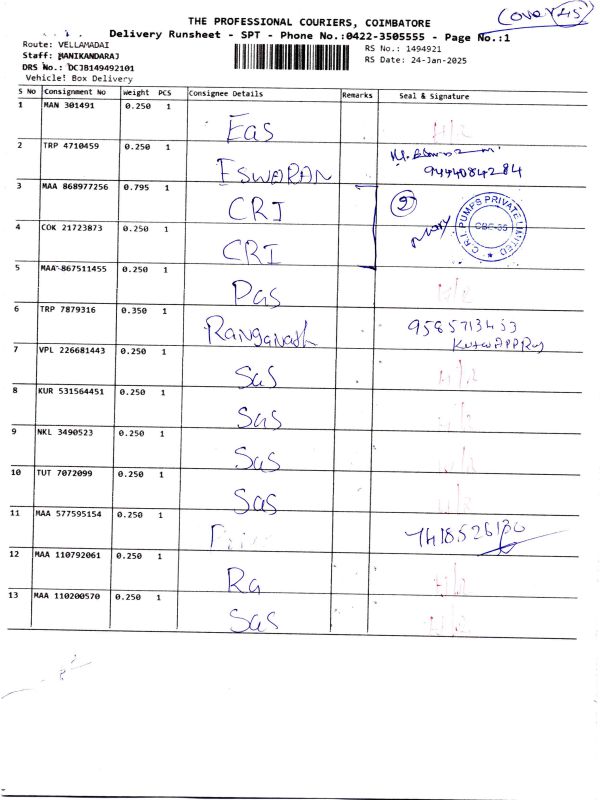 (Cover 45)
THE PROFESSIONAL COURIERS, COIMBATORE
Delivery Runsheet - SPT - Phone No.:0422-3505555 - Page No.:1
Route: VELLAMADAI
RS No.: 1494921
Staff: MANIKANDARAJ
RS Date: 24-Jan-2025
DRS No.: DCJB149492101
Vehicle! Box Delivery
S No Consignment No Weight PCS Consignee Details Remarks Seal & Signature
1 MAN 301491 0.250 1 Eas
2 TRP 4710459 0.250 1 ESWARAN
9444084284
3 MAA 868977256 0.795 1 CRI
2
C.R.I. PUMPS PRIVATE LIMITED
4 COK 21723873 0.250 1 CRI
5 MAA 867511455 0.250 1 Pas
6 TRP 7879316 0.350 1 Ranganath 9585713453
7 VPL 226681443 0.250 1 Sas
8 KUR 531564451 0.250 1 Sas
9 NKL 3490523 0.250 1 Sas
10 TUT 7072099 0.250 1 Sas
11 MAA 577595154 0.250 1 7418526130
12 MAA 110792061 0.250 1 Ra
13 MAA 110200570 0.250 1 Sas